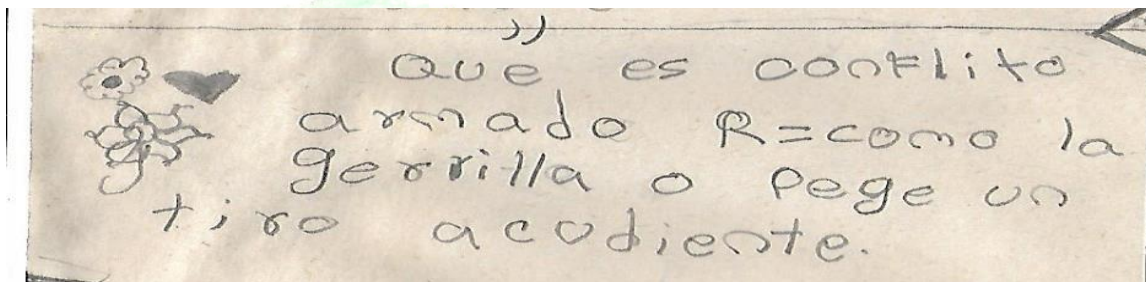 Que es conflito
armado R=como la
gerrilla o Pege un
tiro acudiente.